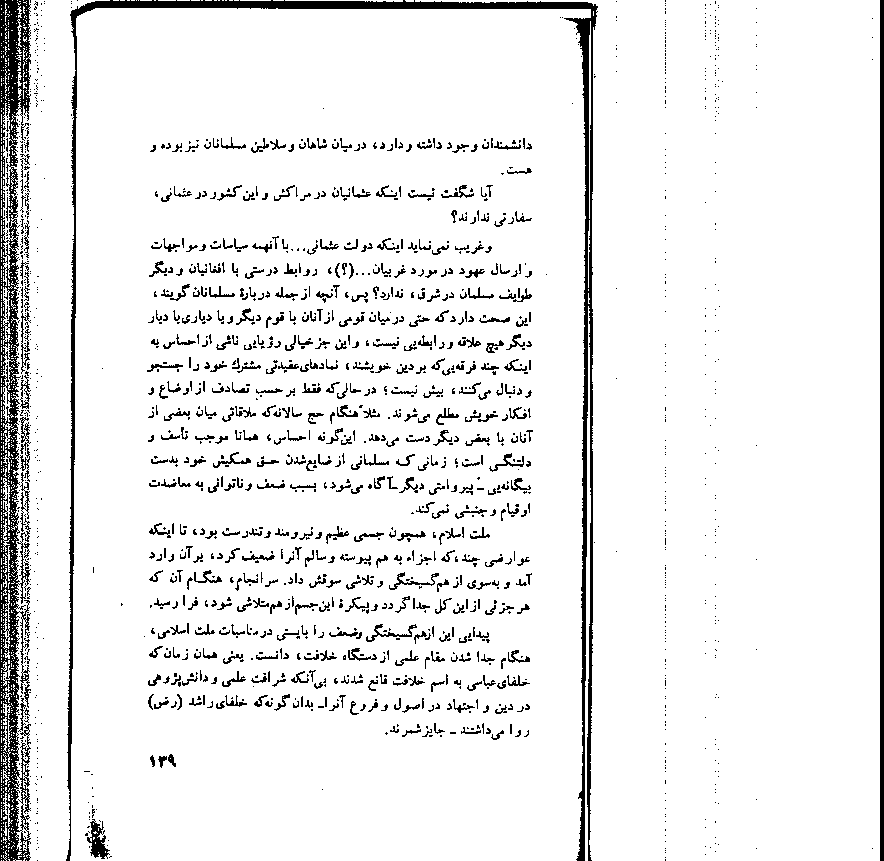 دانشمندان وجود داشته و دارد، در میان شاهان و سلاطین مسلمانان نیز بوده و
هست.
آیا شگفت نیست اینکه عثمانیان در مراکش و این کشور در عثمانی،
سفارتی ندارند؟
و غریب نمی‌نماید اینکه دولت عثمانی... با آنهمه سیاسات و مواجهات
و ارسال عهود در مورد غربیان...(؟)، روابط درستی با افغانیان و دیگر
طوایف مسلمان در شرق، ندارد؟ پس، آنچه از جمله دربارهٔ مسلمانان گویند،
این صحت دارد که حتی در میان قومی از آنان با قوم دیگر و یا دیاری با دیار
دیگر هیچ علاقه و رابطه‌یی نیست، و این جز خیالی رؤیایی ناشی از احساس به
اینکه چند فرقه‌یی که بر دین خویشند، نمادهای عقیدتی مشترك خود را جستجو
و دنبال می‌کنند، بیش نیست؛ در حالی‌که فقط بر حسب تصادف از اوضاع و
افکار خویش مطلع می‌شوند. مثلاً هنگام حج سالانه که ملاقاتی میان بعضی از
آنان با بعض دیگر دست می‌دهد. این‌گونه احساس، همانا موجب تأسف و
دلتنگی است؛ زمانی که مسلمانی از ضایع‌شدن حق همکیش خود بدست
بیگانه‌یی ـ پیرو امتی دیگر ـ آگاه می‌شود، بسبب ضعف و ناتوانی به معاضدت
او قیام و جنبشی نمی‌کند.
ملت اسلام، همچون جسمی عظیم و نیرومند و تندرست بود، تا اینکه
عوارضی چند، که اجزاء به هم پیوسته و سالم آنرا ضعیف کرد، بر آن وارد
آمد و به‌سوی از هم‌گسیختگی و تلاشی سوقش داد. سرانجام، هنگام آن که
هر جزئی از این کل جدا گردد و پیکرهٔ این جسم از هم متلاشی شود، فرا رسید.
پیدایی این ازهم‌گسیختگی وضعف را بایستی در مناسبات ملت اسلامی،
هنگام جدا شدن مقام علمی از دستگاه خلافت، دانست. یعنی همان زمان که
خلفای عباسی به اسم خلافت قانع شدند، بی‌آنکه شرافت علمی و دانش‌پژوهی
در دین و اجتهاد در اصول و فروع آنرا ـ بدان گونه که خلفای راشد (رض)
روا می‌داشتند ـ جایز شمرند.
۱۳۹